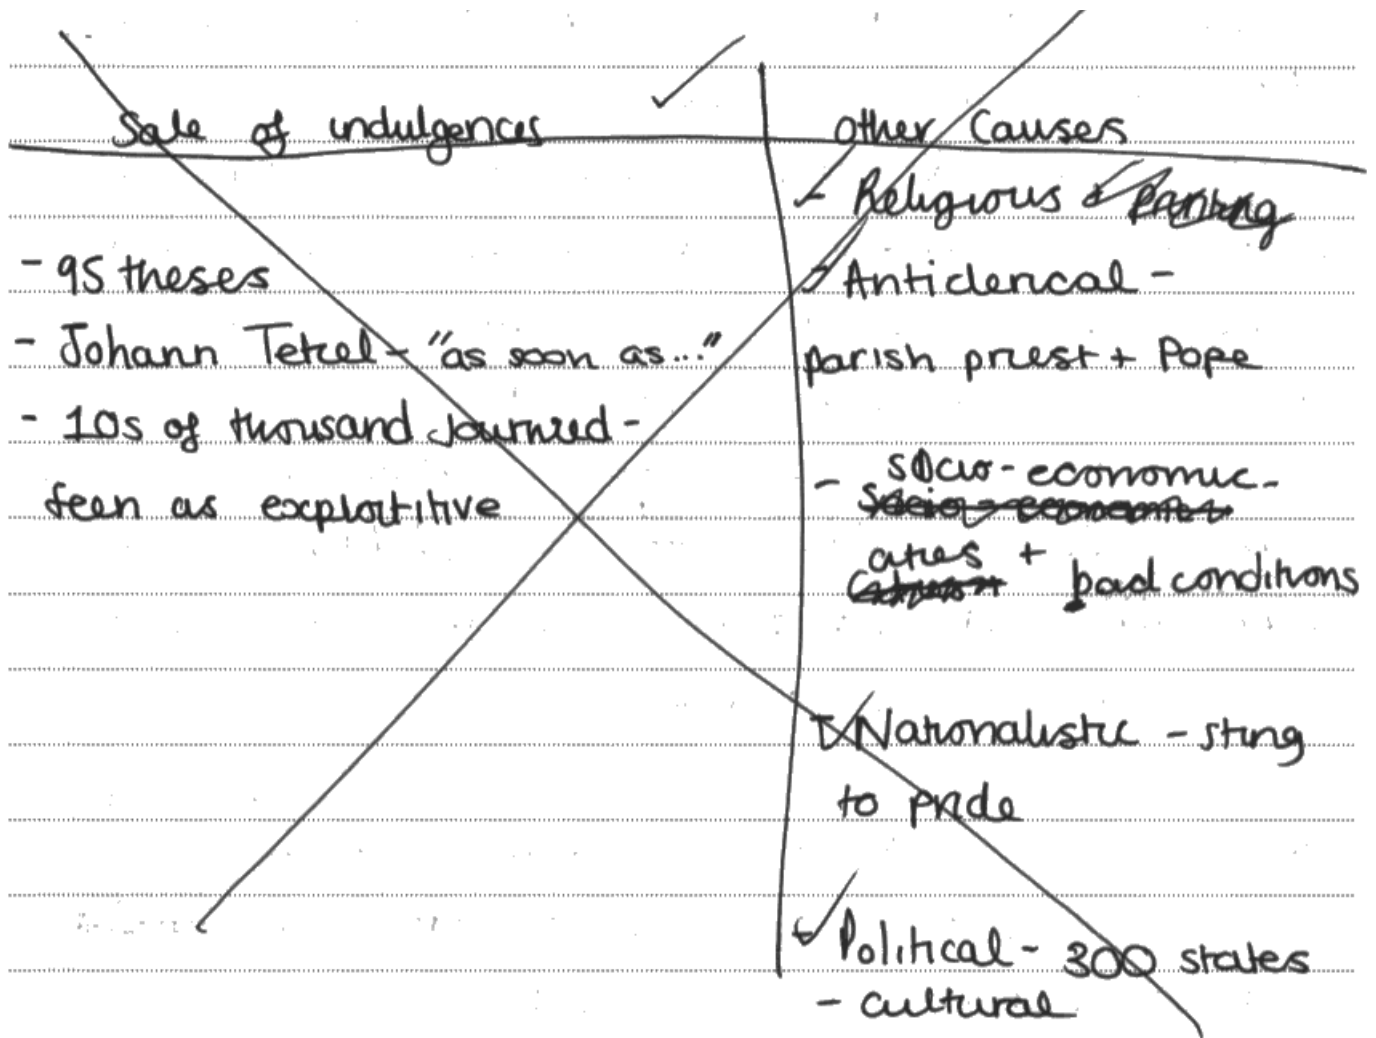 Sale of indulgences
- 95 theses
- Johann Tetzel - "as soon as..."
- 10s of thousand journied -
seen as exploititive
Other Causes
- Religious
- Anticlerical -
parish priest + Pope
- socio-economic -
cities + bad conditions
- Nationalistic - sting
to pride
- Political - 300 states
- cultural